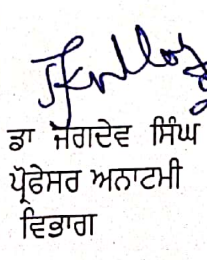 ਡਾ ਜਗਦੇਵ ਸਿੰਘ
ਪ੍ਰੋਫੈਸਰ ਅਨਾਟਮੀ
ਵਿਭਾਗ